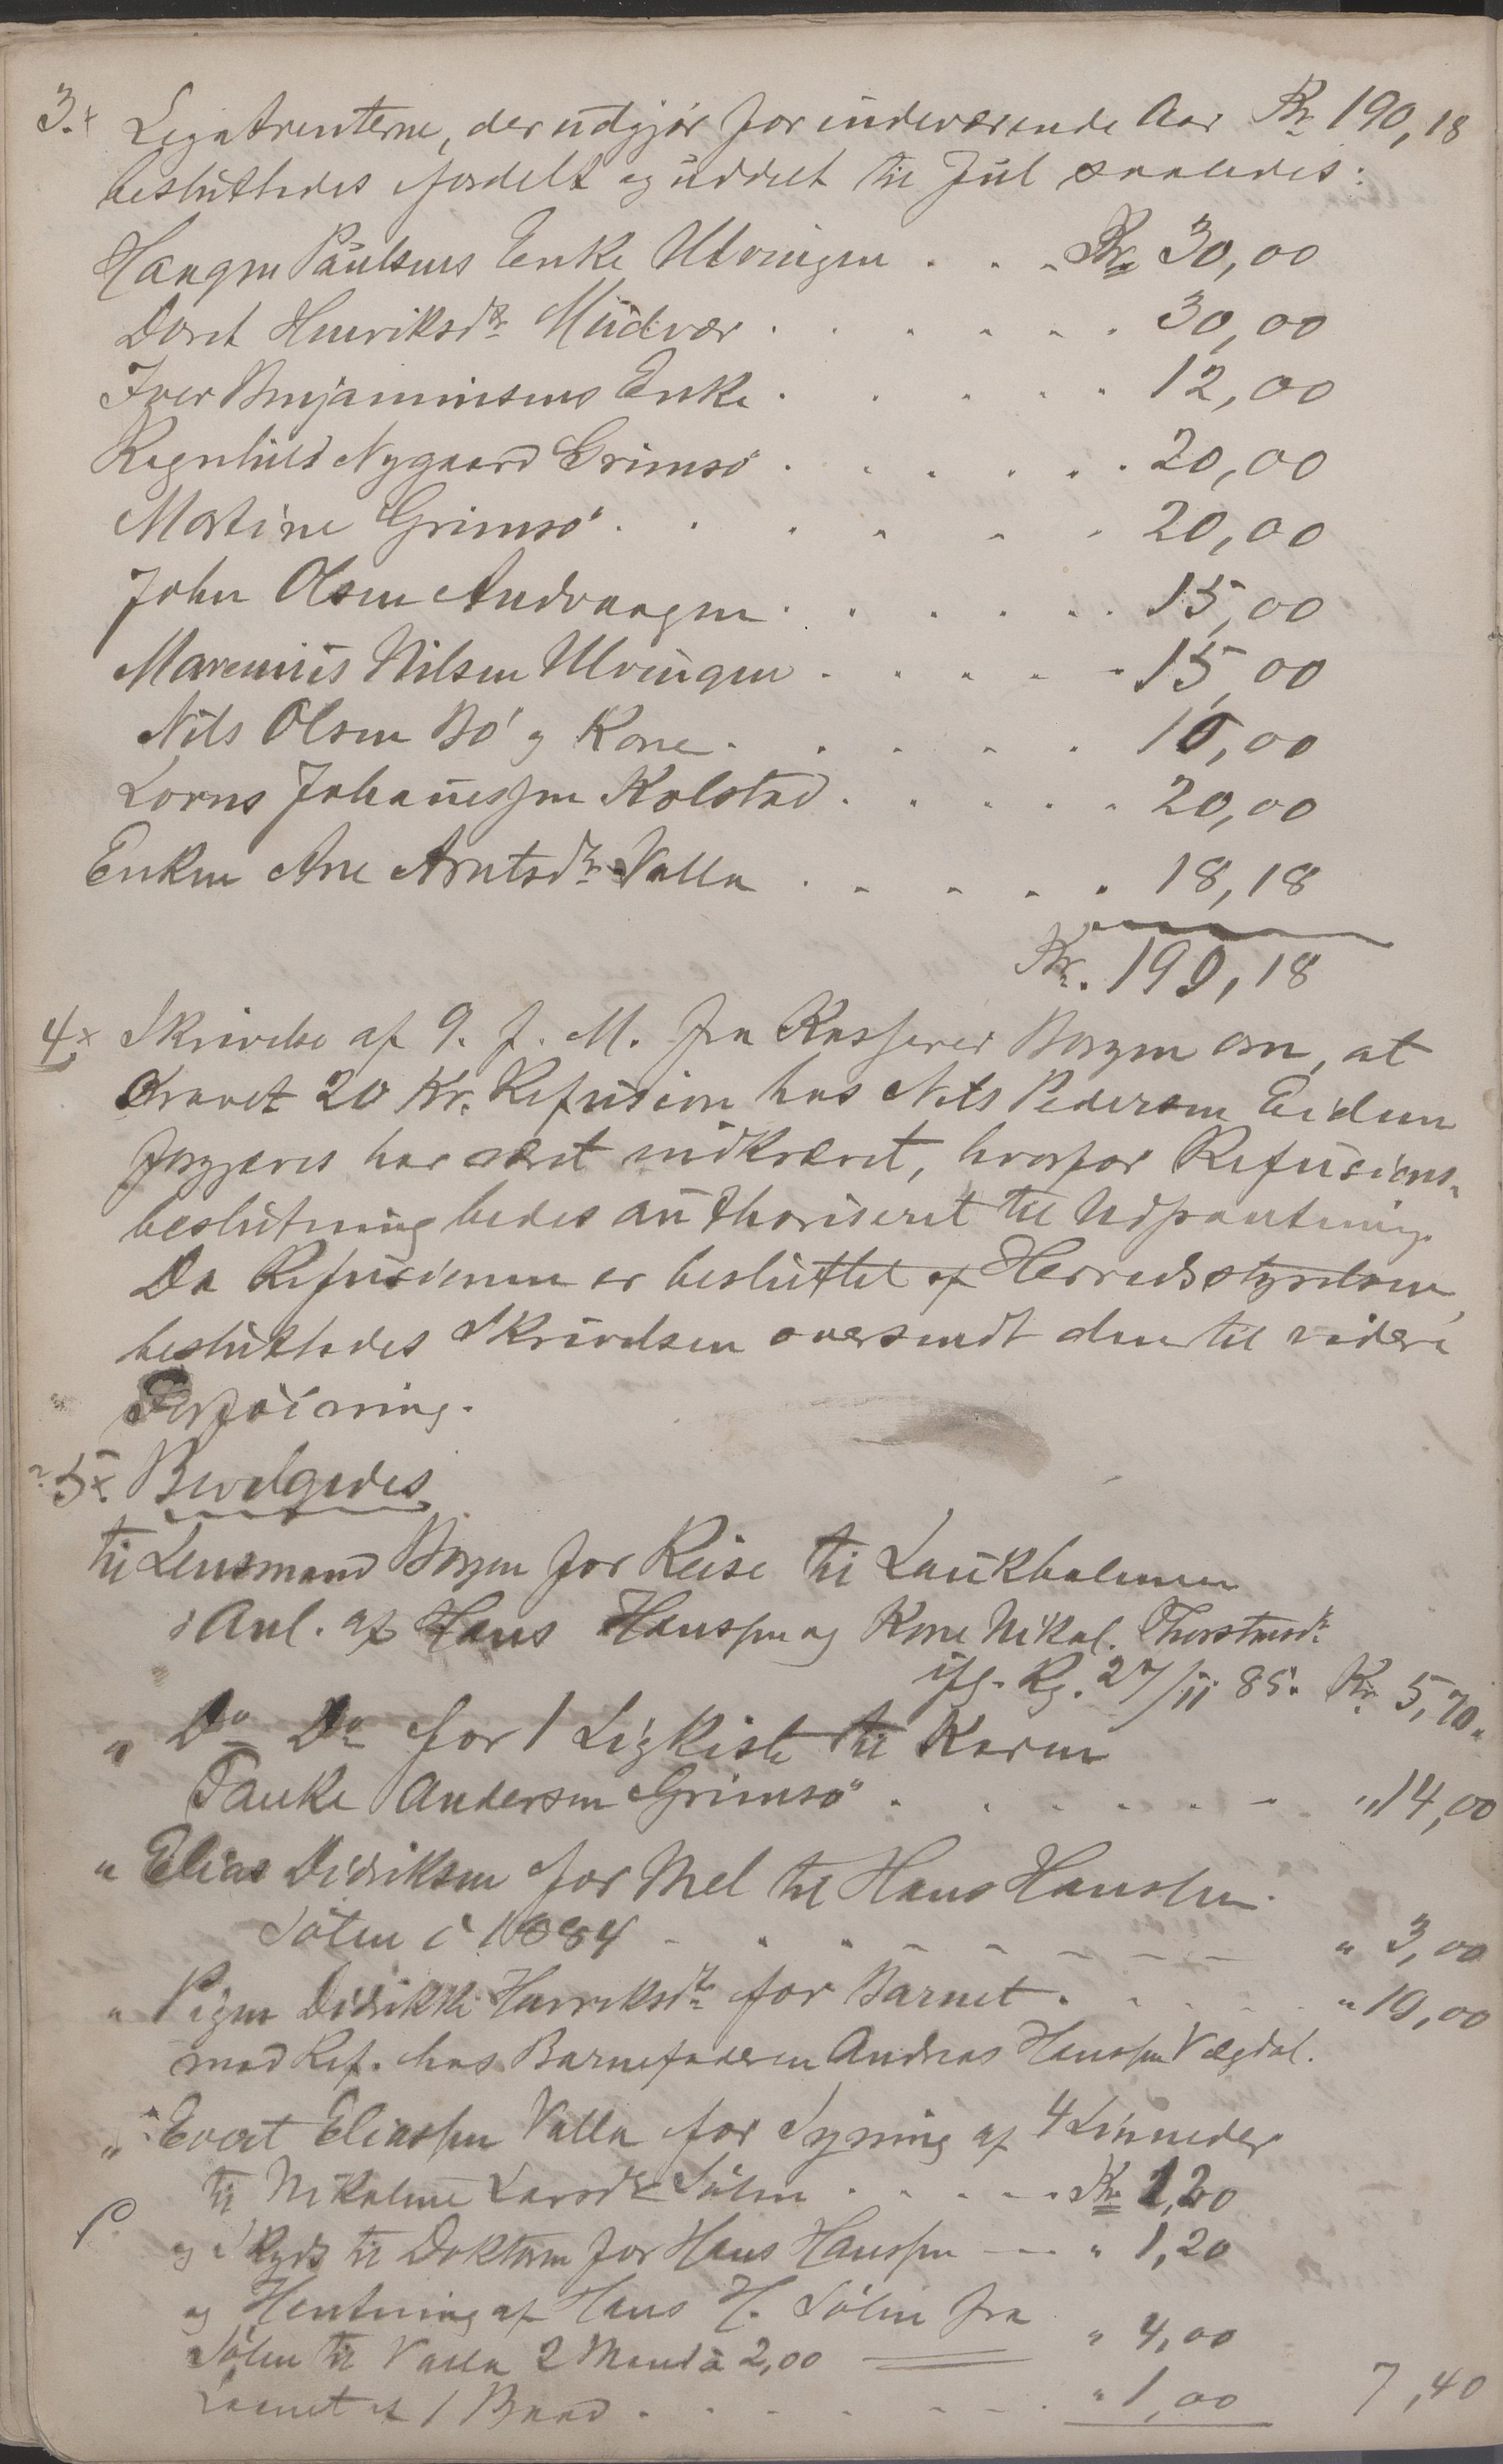 3.x Legatrenterne, der udgjør for indeværende Aar Kr 190,18
besluttedes fordelt og uddelt til Jul saaledes:
Haagen Paulsens Enke Ulvingen . . . Kr. 30,00
Doret Henriksdr Mudvær . . . . . . 30,00
Iver Benjaminsens Enke . . . . . 12,00
Regnhild Nygaard Grimsø . . . . . 20,00
Martine Grimsø . . . . . 20,00
John Olsen Andvaagen . . . . . . 15,00
Marenius Nilsen Ulvingen . . . . . 15,00
Nils Olsen Bø og Kone . . . . . 10,00
Lorns Johannessen Kolstad . . . . . 20,00
Enken Ane Arntsdr Valla . . . . . 18,18
Kr. 190,18
4x Skrivelse af 9. f. M. fra Kasserer Borgen om, at
Kravet 20 Kr. Refusion hos Nils Pedersen Eidem
forgjæves har været indkrævet, hvorfor Refusions-
beslutning bedes authoriseret til Udpantning.
Da Refusionen er besluttet af Herredsstyrelsen,
besluttedes Skrivelsen oversendt den til videre
Forføining.
5x. Bevilgedes
til Lensmand Borgen for Reise til Laukholmen
i Anl. af Hans Hanssen og Kone Nikol. Thorstensdr
ifg. Rg. 27/11 85. Kr. 5,70
" Do Do for 1 Ligkiste til Karen
Tanke Andersen Grimsø . . . . . . " 14,00
" Elias Didriksen for Mel til Hans Hanssen
Sølen i 1884 - . . - - - - - " 3,00
" Pigen Didrikke Henriksdr for Barnet . . . . " 19,00
mod Ref. hos Barnefaderen Andreas Hanssen Vægdal.
" Evert Eliassen Valla for Syning af 4 Linneder
til Nikoline Larsdr Sølen . . . . . Kr 1,20
og Skyds til Doktoren for Hans Hanssen — - " 1,20
og Hentning af Hans H. Sølen fra
Sølen til Valla 2 Mand à 2,00 — " 4,00
Laanet af 1 Baad . . . . . . " 1,00 7,40